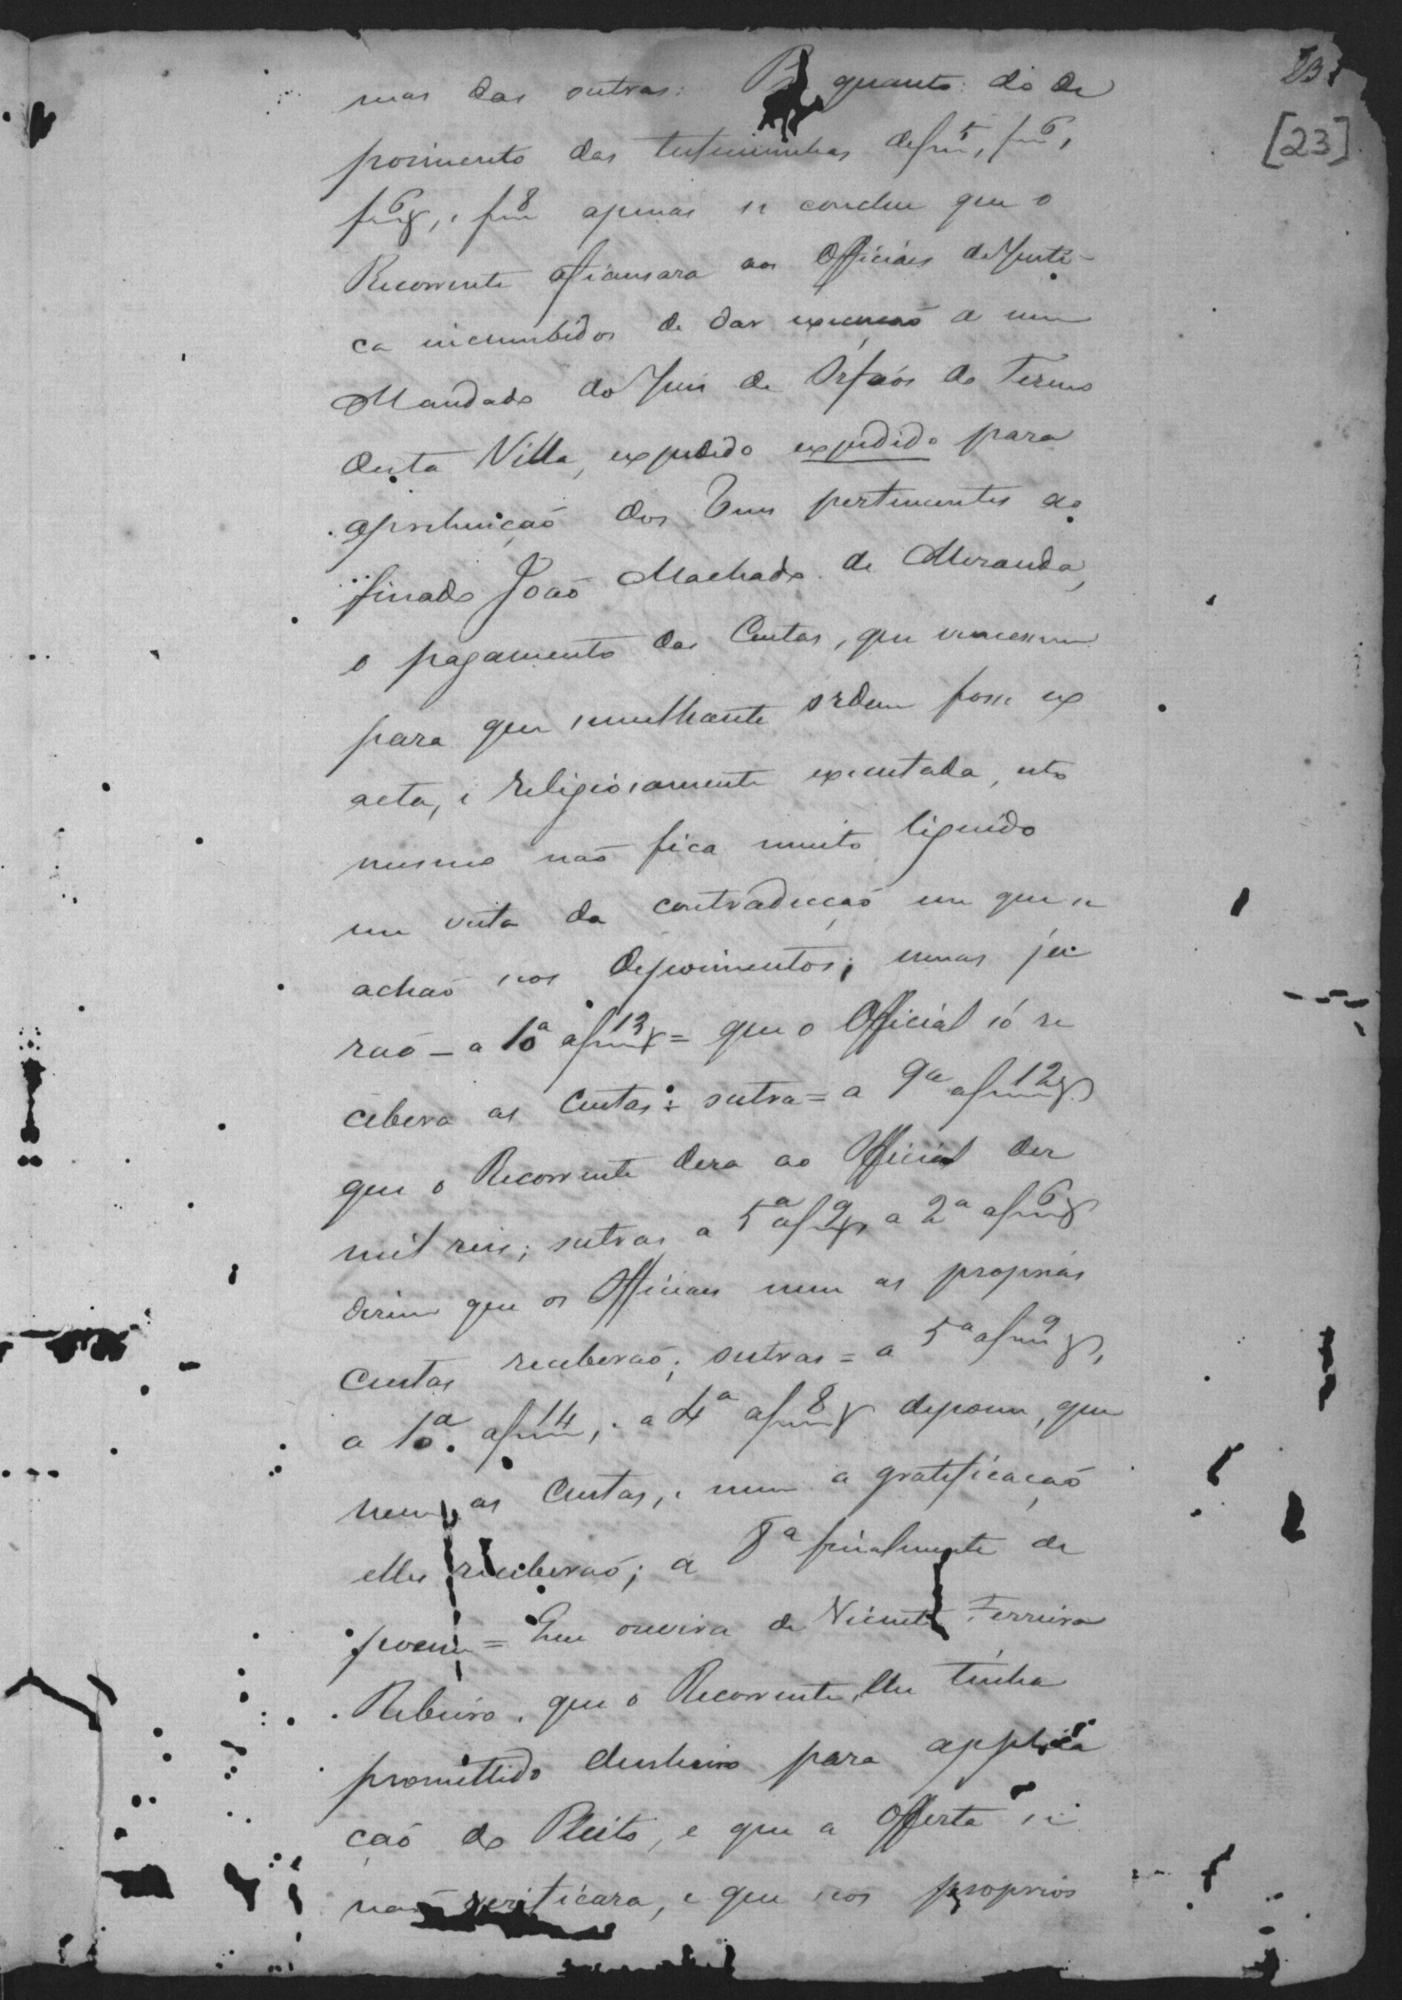 23
[23]
mas das outras. E quanto do de
poimento das testemunhas de f 5, f 6,
f 6, e f 8 apenas se conclue que o
Recorrente afiansara aos Officiaes de Justi-
ca incumbidos de dar execucaõ a um
Mandado do Juis de Orfaõs do Termo
desta Villa, expedido expedido para
aprehençaõ dos bens pertencentes ao
finado Joaõ Machado de Miranda,
o pagamento das Custas, que vencessem
para que semelhante ordem fosse ex
acta, e religiosamente executada, isto
mesmo naõ fica muito liquido
em vista da contradicçaõ em que se
achaõ nos depoimentos; umas ju
raõ = a 10ª a f 13 = que o Official só re
cebera as Custas: outra = a 9ª a f 12
que o Recorrente dera ao Official des
mil reis; outras a 5ª a f 9 a 2ª a f 6
disem que os Officiaes nem as proprias
Custas receberaõ; outras = a 5ª a f 9,
a 10ª. a f 14, e a 4ª a f 8 depoem, que
nem as Custas, e nem a gratificaçaõ
elles receberaõ; a 8ª finalmente de
poem = Que ouvira de Vicente Ferreira
Ribeiro, que o Recorrente lhe tinha
promettido dinheiro para applica
çaõ do Pleito, e que a Offerta se
naõ verificara, e que nos proprios